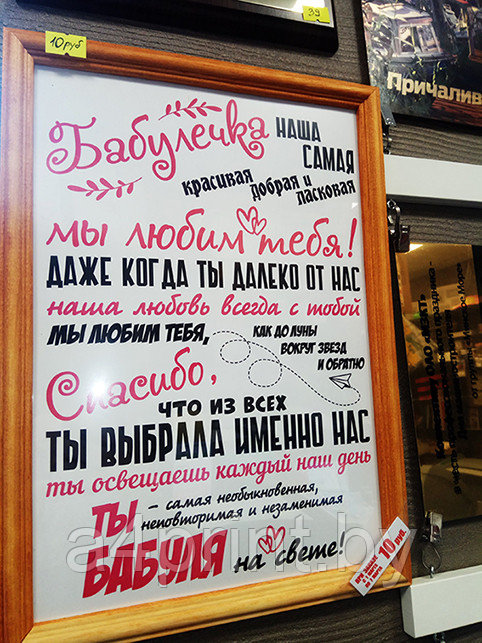 10 руб
39
Причалив
Бабулечка наша
самая
красивая
добрая и
ласковая
мы любим тебя!
даже когда ты далеко от нас
наша любовь всегда с тобой
мы любим тебя,
как до луны
вокруг звезд
и обратно
Спасибо,
что из всех
ты выбрала именно нас
ты освещаешь каждый наш день
Ты
– самая необыкновенная,
неповторимая и незаменимая
БАБУЛЯ на свете!
10 руб.
a4print.by